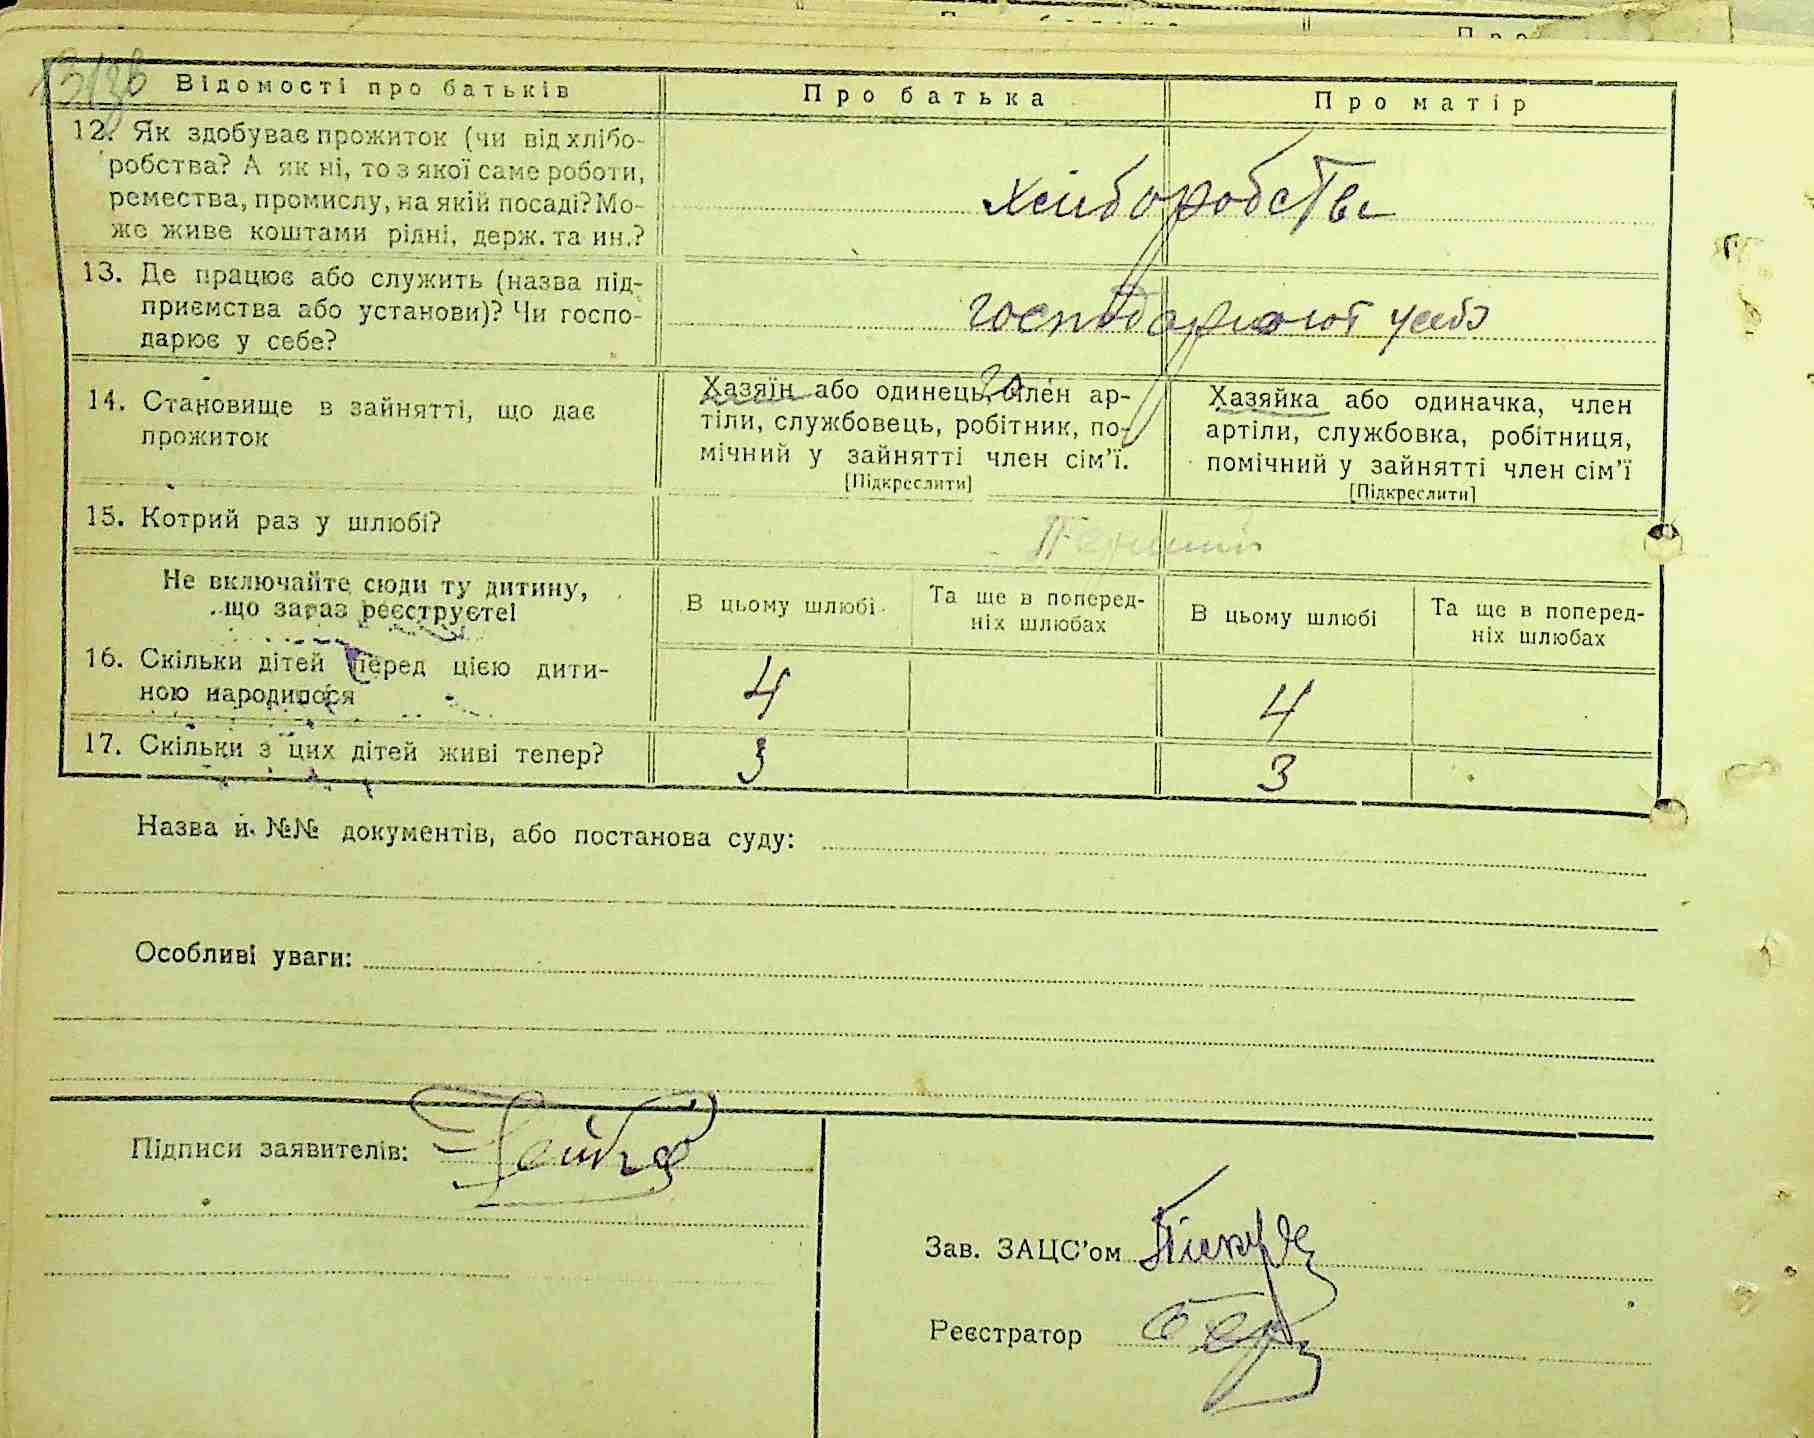 Відомості про батьків
Про батька
Про матір
12. Як здобуває прожиток (чи від хлібо-
робства? А як ні, то з якої саме роботи,
ремества, промислу, на якій посаді? Мо-
же живе коштами рідні, держ. та ин.?
хліборобства
13. Де працює або служить (назва під-
приємства або установи)? Чи госпо-
дарює у себе?
господарюют у себе
14. Становище в зайнятті, що дає
прожиток
Хазяїн або одинець, член ар-
тіли, службовець, робітник, по-
мічний у зайнятті член сім'ї.
[Підкреслити]
Хазяйка або одиначка, член
артіли, службовка, робітниця,
помічний у зайнятті член сім'ї
[Підкреслити]
15. Котрий раз у шлюбі?
Первший
Не включайте сюди ту дитину,
що зараз реєструєте!
В цьому шлюбі
Та ще в поперед-
ніх шлюбах
В цьому шлюбі
Та ще в поперед-
ніх шлюбах
16. Скільки дітей перед цією дити-
ною народилося
4
4
17. Скільки з цих дітей живі тепер?
3
3
Назва й №№ документів, або постанова суду:
Особливі уваги:
Підписи заявителів:
Зав. ЗАЦС'ом
Реєстратор